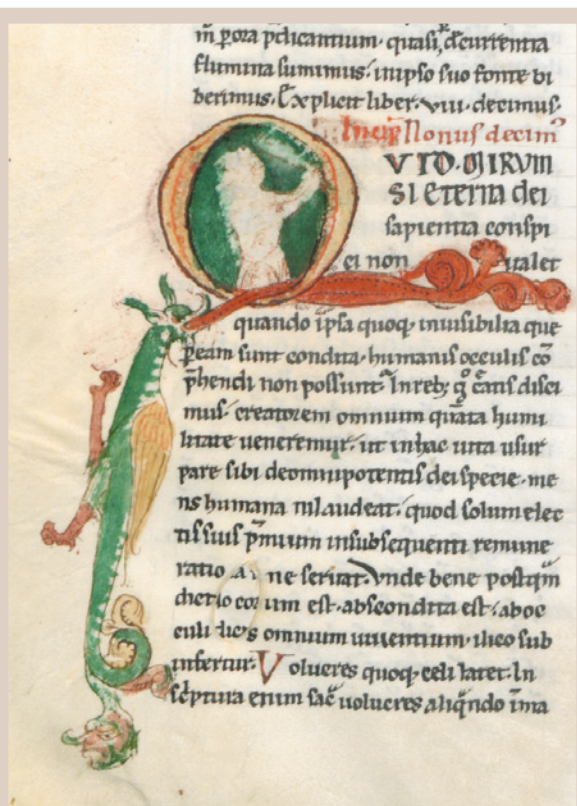 in pora p̄dicantium· quasi, decurrentia
flumina sumimus· in ipso suo fonte bi
berimus. Explicit liber· xviii· decimus·
Incip̄ Nonus decim᾽
QVID· MIRVM
SI eterna dei
sapientia conspi
ci non ualet
quando ipsa quoq; inuisibilia que
p eam sunt condita· humanis occulis cō
p̄hendi non possunt· In reb; g͛ c̄atis disci
mus· creatorem omnium q̄nta humi
litate ueneremur· ut in hac uita usur
pare sibi de omnipotentis dei specie· me
ns humana nil audeat· quod solum elec
tis suis p̄mium in subsequenti remune
ratione seruat. Vnde bene postq̄m
dictū est· abscondita est· ab oc
culis omnium uiuentium· ilico sub
infertur· Volucres quoq; celi latet· In
sc̄ptura enim sac̄ uolucres aliq̄ndo ī ma